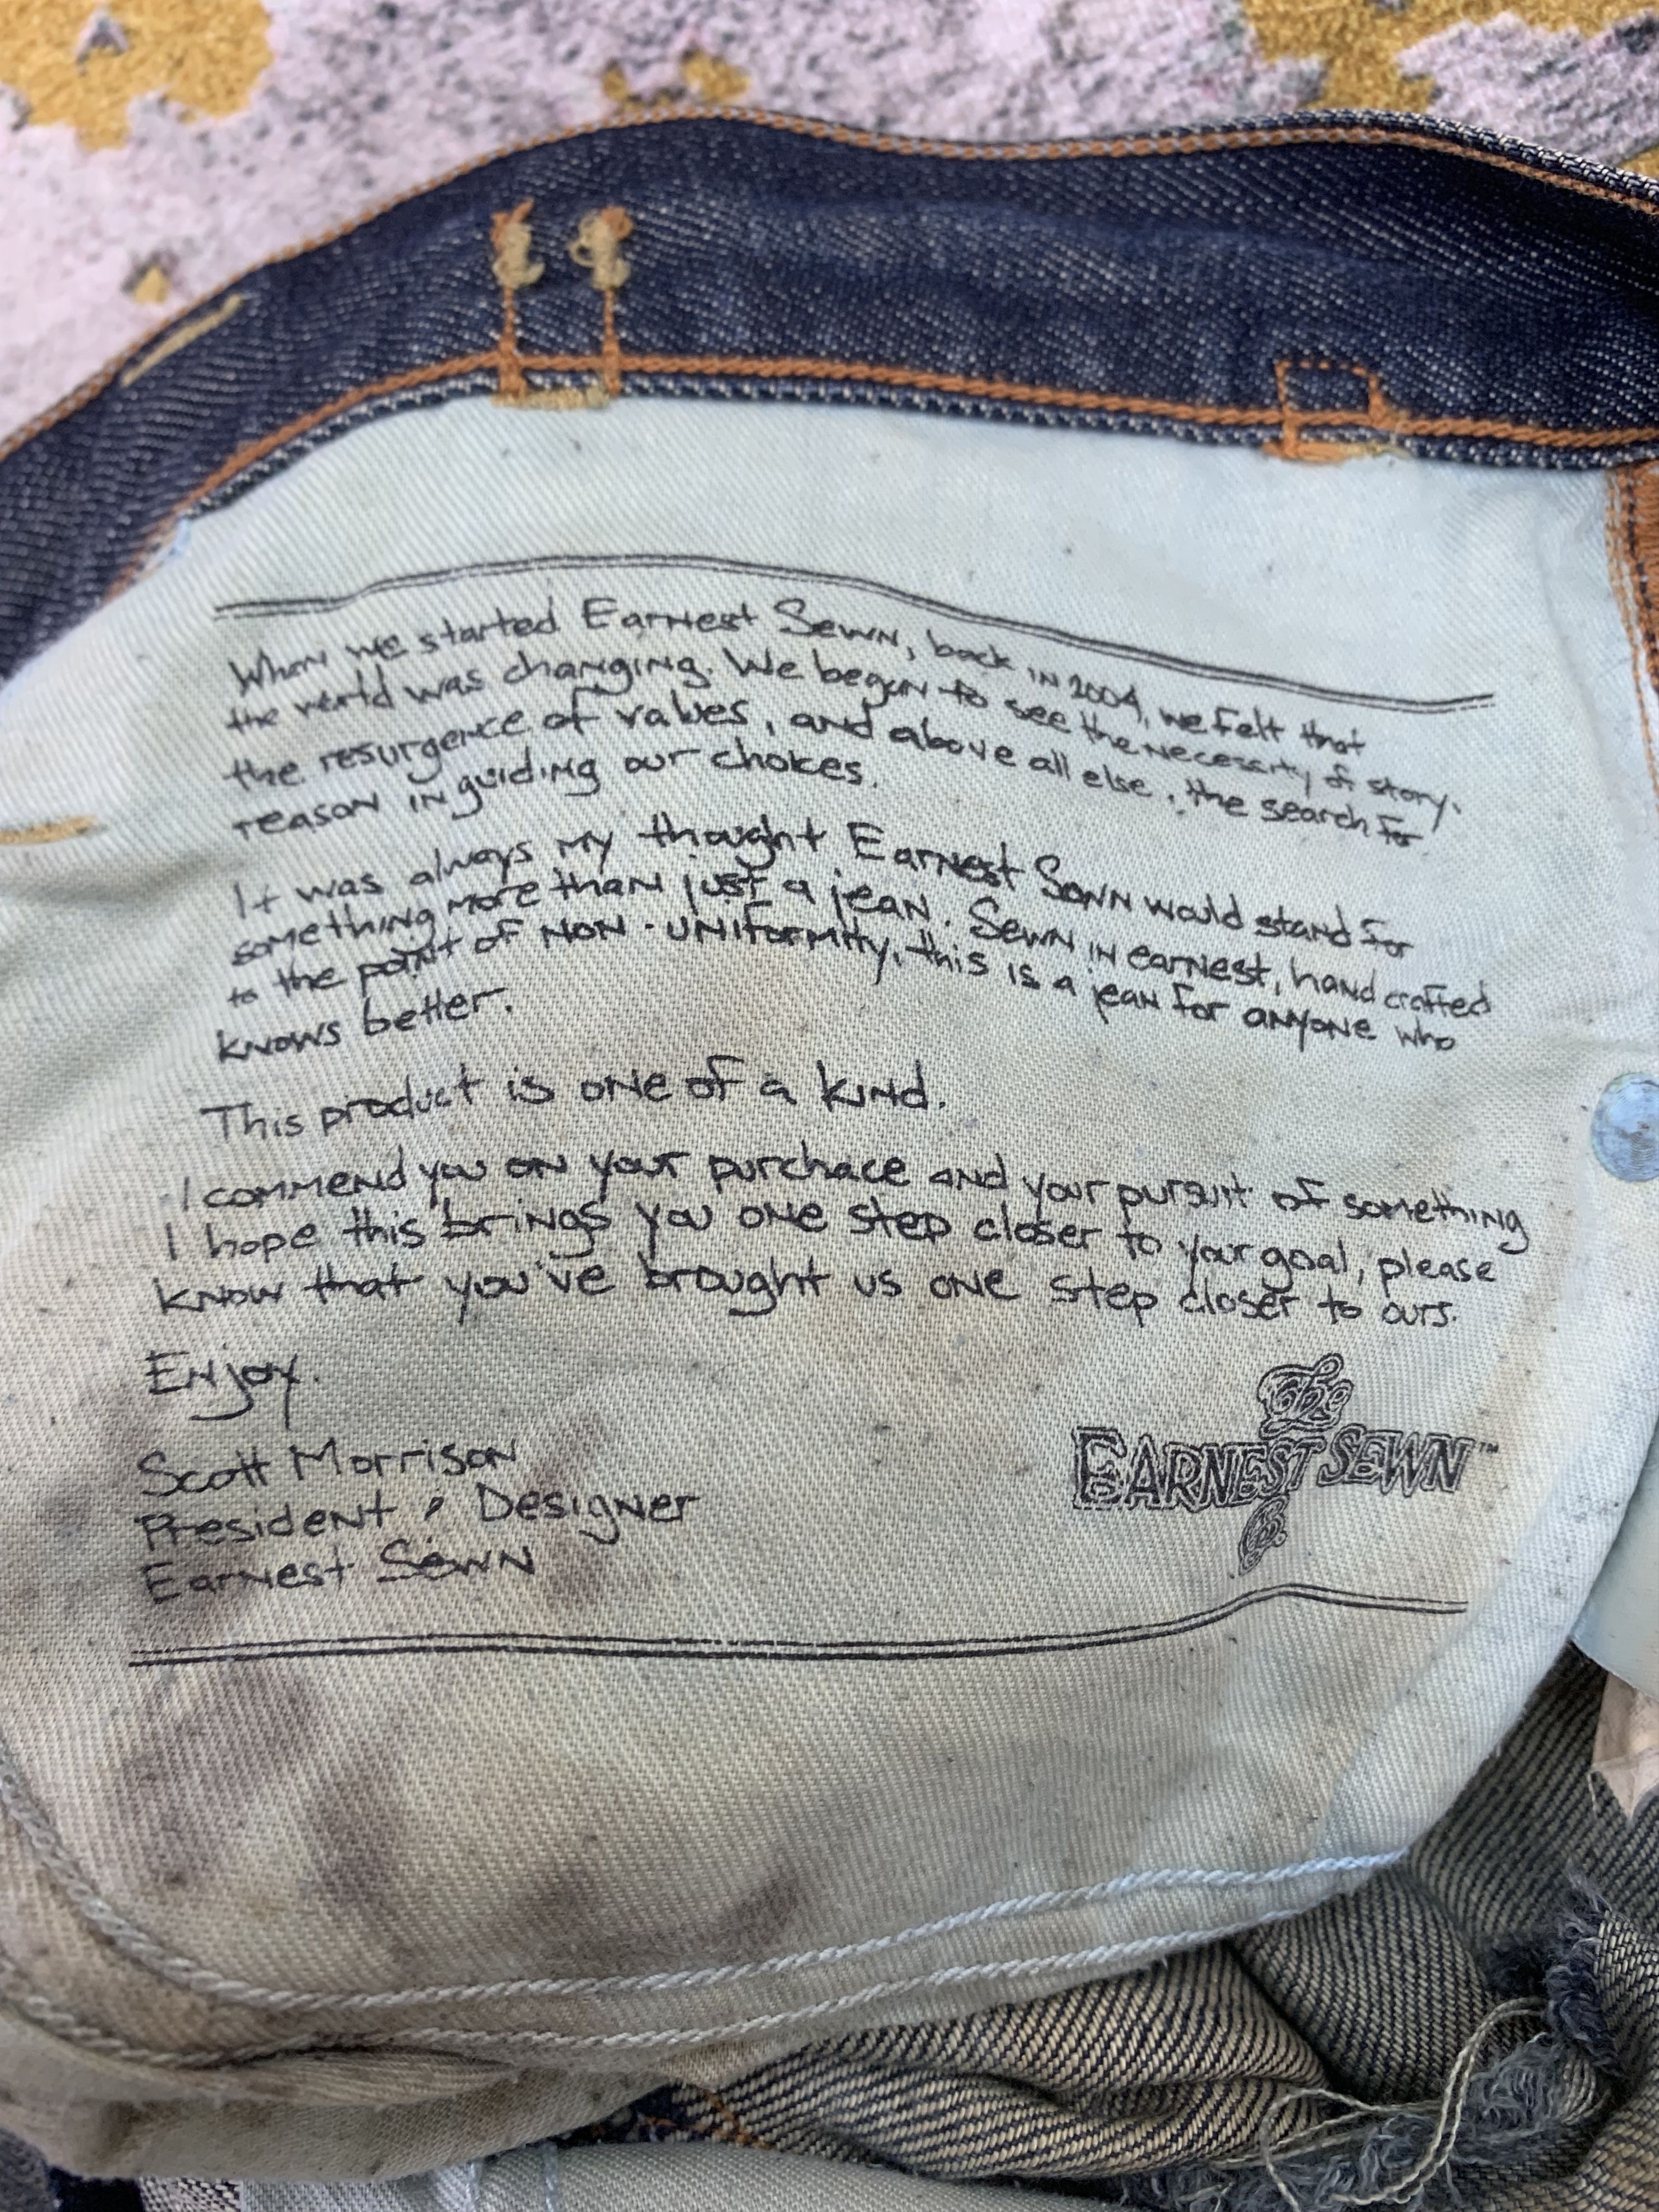 When we started Earnest Sewn, back in 2004, we felt that
the world was changing. We began to see the necessity of story,
the resurgence of values, and above all else, the search for
reason in guiding our choices.
It was always my thought Earnest Sewn would stand for
something more than just a jean. Sewn in earnest, hand crafted
to the point of non-uniformity, this is a jean for anyone who
knows better.
This product is one of a kind.
I commend you on your purchace and your pursuit of something
I hope this brings you one step closer to your goal, please
know that you've brought us one step closer to ours.
Enjoy.
Scott Morrison
President & Designer
Earnest Sewn
EARNEST SEWN™